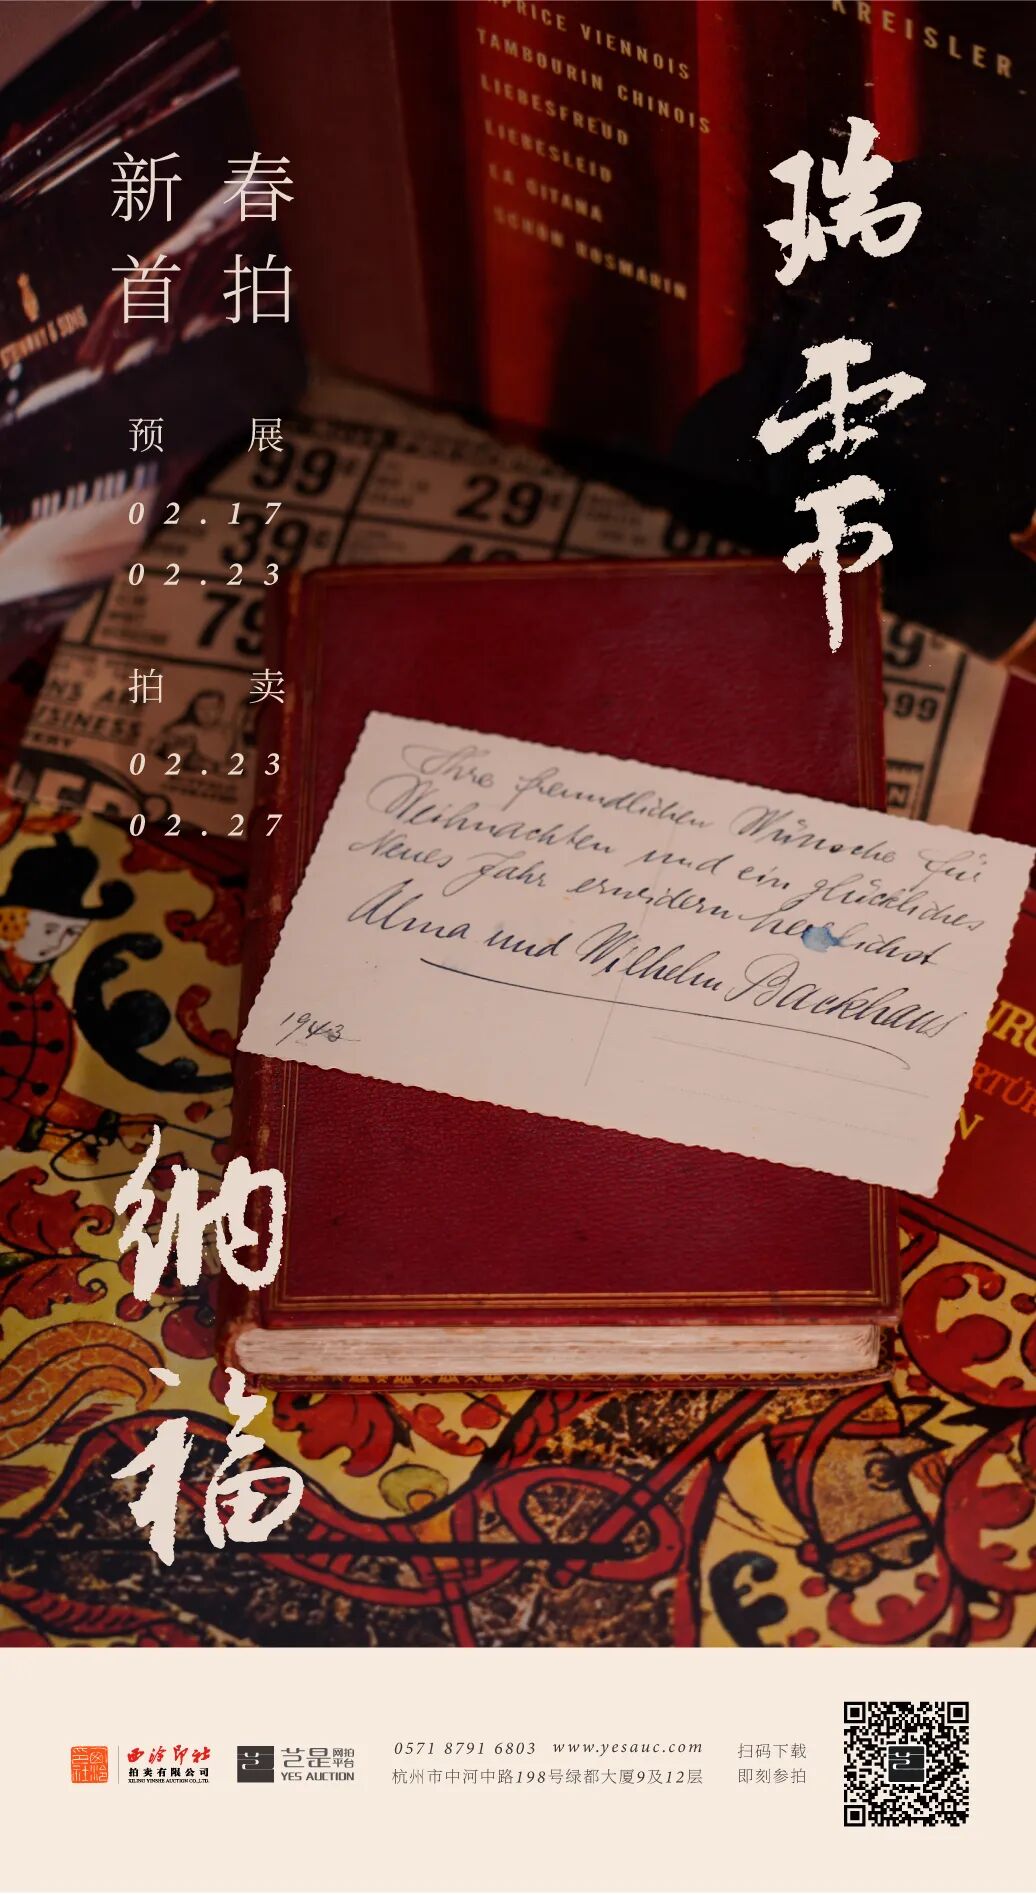 PRICE VIENNOIS
TAMBOURIN CHINOIS
LIEBESFREUD
LIEBESLEID
LA GITANA
SCHÖN ROSMARIN
KREISLER
瑞雪
纳福
新春
首拍
预展
02.17
02.23
拍卖
02.23
02.27
STEINWAY & SONS
99¢
29¢
39¢
79
99
BUSINESS
Ihre freundlichen Wünsche für
Weihnachten und ein glückliches
Neues Jahr erwidern herzlichst
Alma und Wilhelm Backhaus
1943
西泠印社
拍卖有限公司
XILING YINSHE AUCTION CO.,LTD.
艺是网拍平台
YES AUCTION
0571 8791 6803 www.yesauc.com
杭州市中河中路198号绿都大厦9及12层
扫码下载
即刻参拍